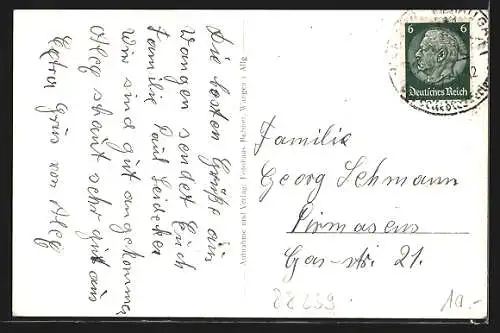 Die besten Grüße aus
Wangen sendet Euch
Familie Paul Seidecker
Wir sind gut angekommen
Aleg schaut sehr gut aus
Extra Gruß von Aleg
Aufnahme und Verlag: Fotohaus Wangen i Allg
6 6
Deutsches Reich
Familie
Georg Lehmann
Pirmasens
Gas-str. 21.
28239
10.-